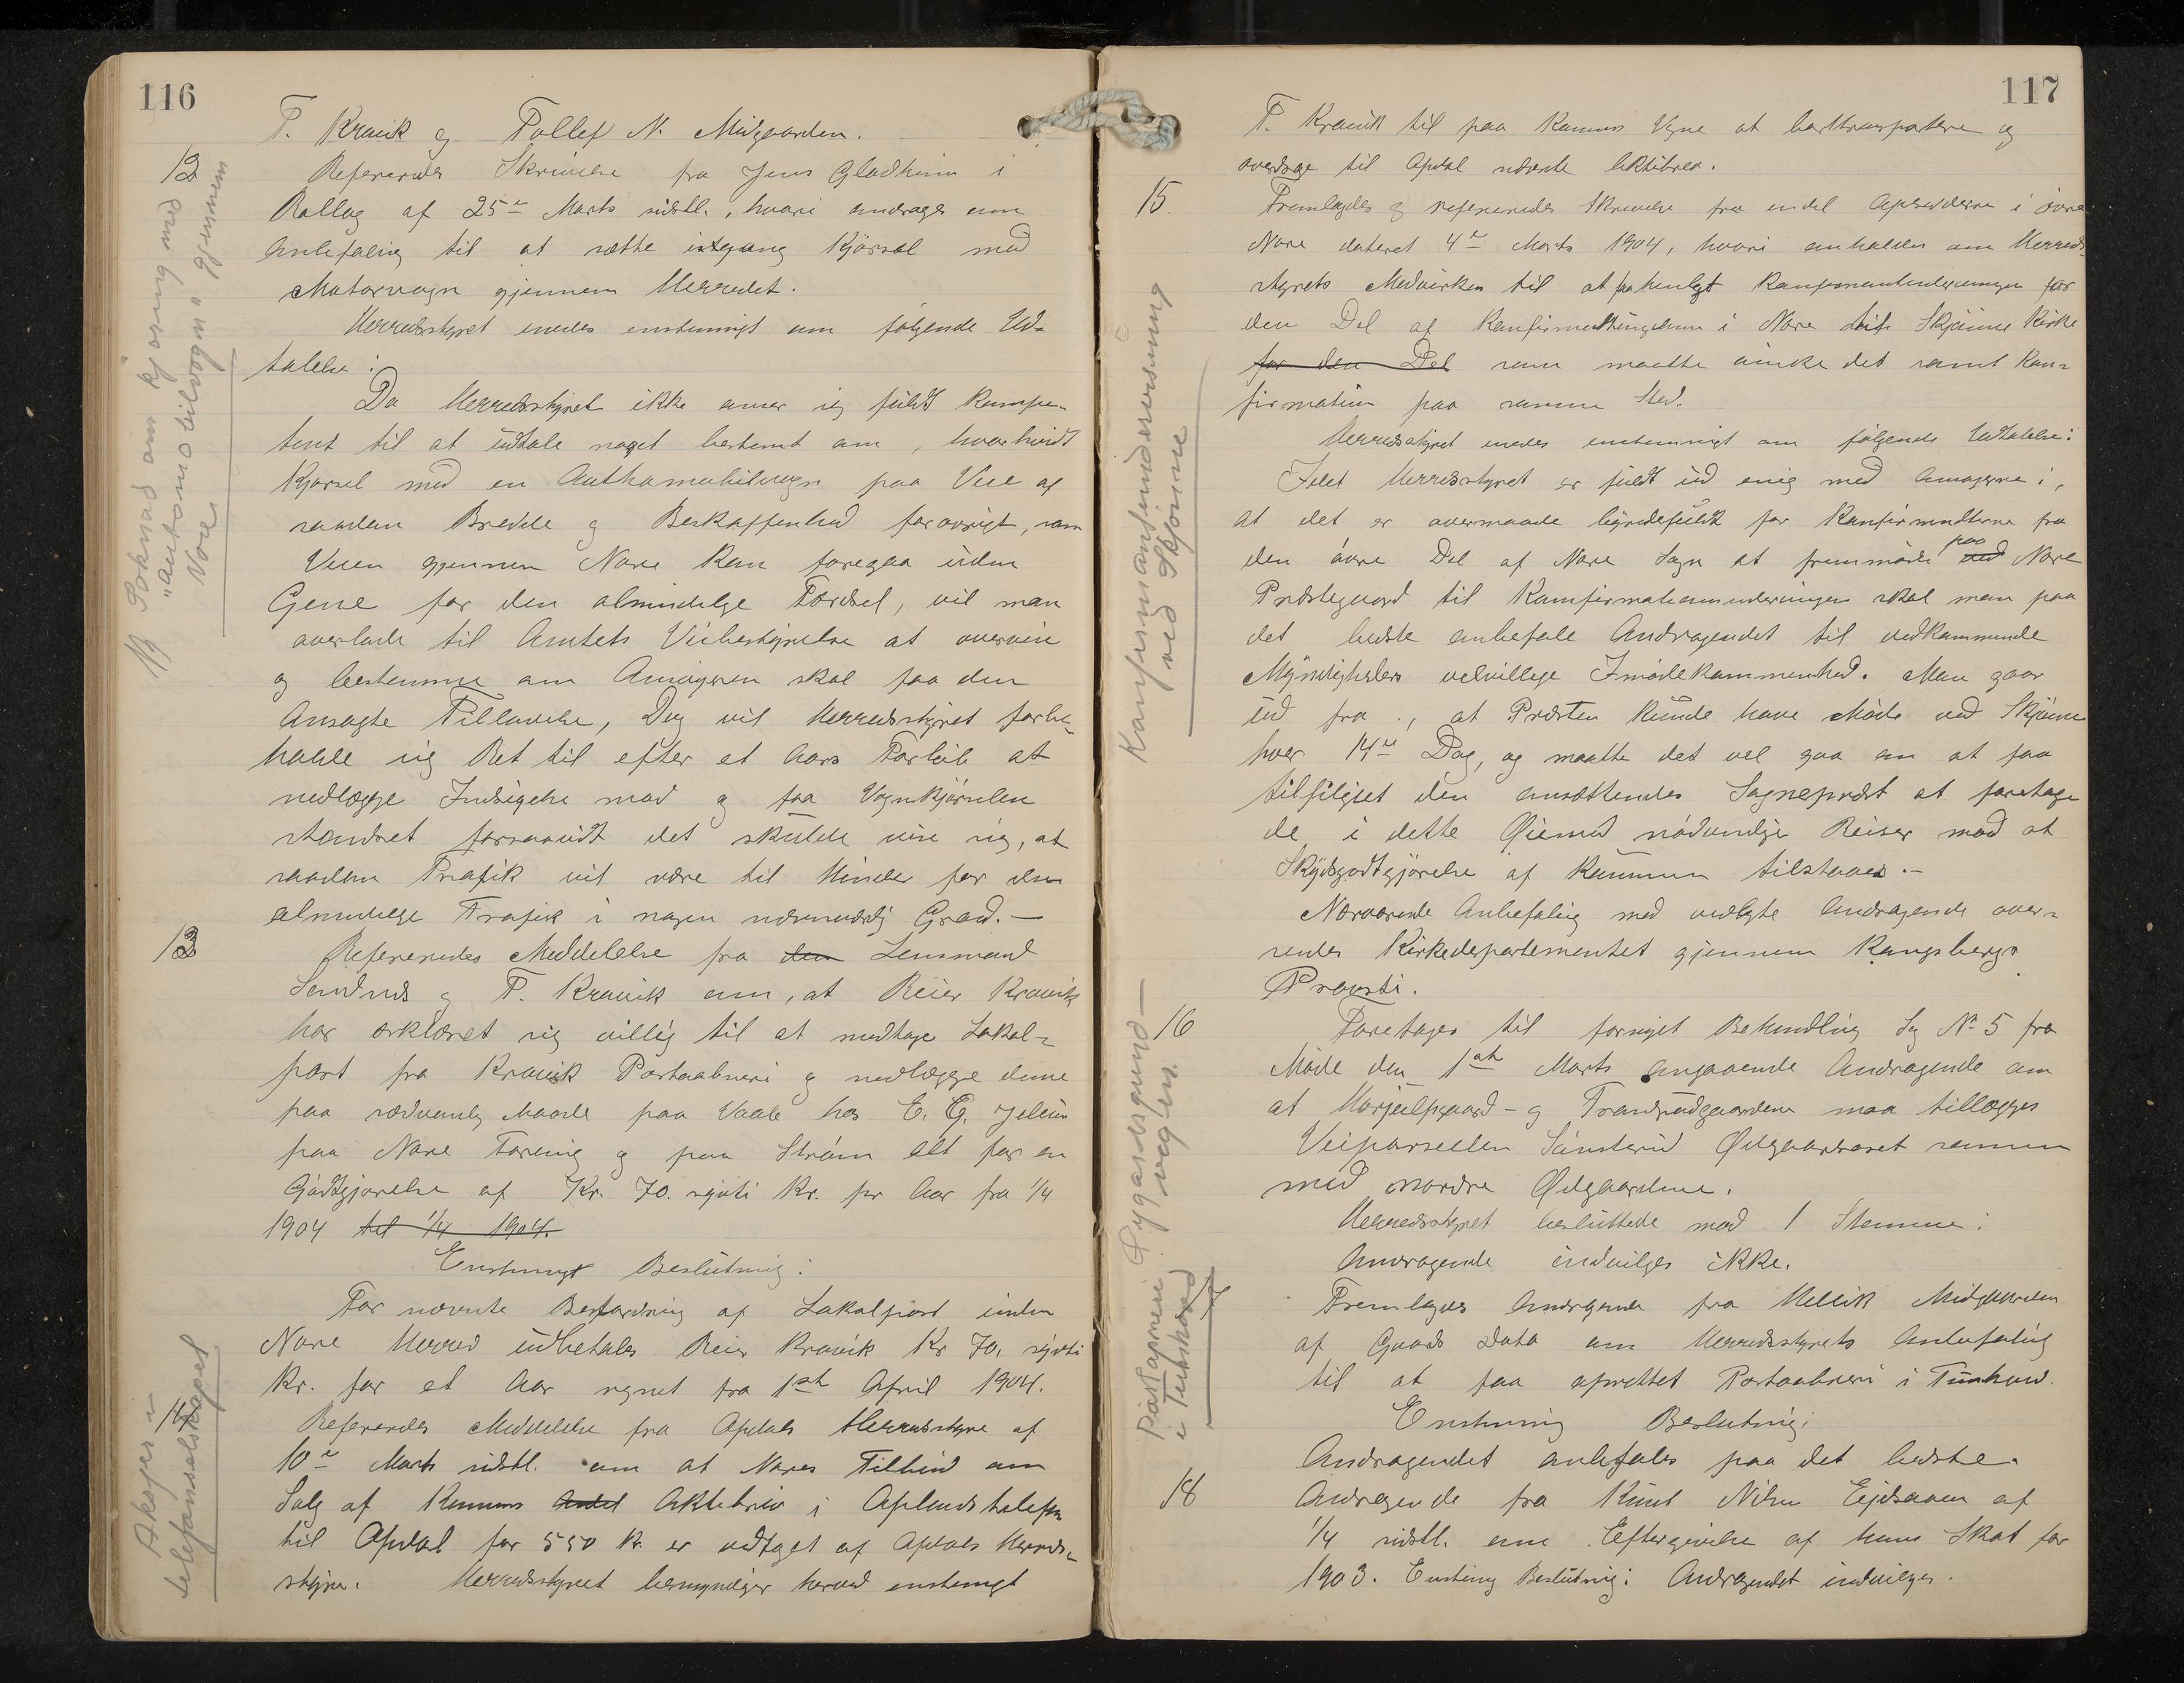 116
T. Kravik og Tollef N. Midgaarden.
12
Refereredes Skrivelse fra Jens Gladheim i
Rollag af 25de Marts sidstl., hvori andrages om
Anbefaling til at sætte istgang Kjørsel med
Motorvogn gjennem Herredet.
Herredsstyret enedes enstemmigt om følgende Ud-
talelse:
Da Herredsstyret ikke anser sig fuldt kompe-
tent til at udtale noget bestemt om, hvorhvidt
Kjørsel med en Authomobilvogn paa Veie af
saadan Bredde og Beskaffenhed forøvrigt, som
Veien gjennem Nore kan foregaa uden
Gene for den almindelige Færdsel, vil man
overlade til Amtets Veibestyrelse at overveie
og bestemme om Ansøgeren skal faa den
Ansøgte Tilladelse, Dog vil Herredsstyret forbe-
holde sig Ret til efter et Aars Forløb at
nedlægge Indsigelse mod og faa Vognkjørselen
standset forsaavidt det skulde vise sig, at
saadan Trafik vil være til Hinder for den
almindelige Trafik i nogen nævneværdig Grad.—
Søknad om kjøring med
"automobilvogn" gjennem
Nore
13
Refereredes Meddelelse fra den Lensmand
og T. Kravik om, at Reier Kravik
har erklæret sig villig til at medtage Lokal-
post fra Kravik Postaabneri og nedlægge denne
paa sædvanlig Maade paa Vaale hos E. G.
paa Nore Forening og paa Strøm alt for en
Godtgjørelse af Kr. 70. sytti Kr. pr Aar fra 1/4
1904 til 1/4 1904.
Enstemmigt Beslutning:
For nævnte Befordring af Lokalpost inden
Nore Herred udbetales Reier Kravik Kr 70, sytti
Kr. for et Aar regnet fra 1ste April 1904.
14
Aksjer i
telefonselskapet
Refereredes Meddelelse fra Opdals Herredsstyre af
10de Marts sidstl. om at Nores Tilbud om
Salg af Kommunens Andel Aktiebrev i Oplands telefon
til Opdal for 550 Kr. er vedtaget af Opdals Herreds-
styre. Herredsstyret bemyndiger herved enstemmigt
117
T. Kravik til paa Kommunens Vegne at borttransportere og
overdrage til Opdal nævnte Aktiebrev.
15.
Fremlagdes og refereredes Skrivelse fra endel Opsiddere i øvre
Nore dateret 4de Marts 1904, hvori anholdes om Herreds-
styrets Medvirken til at faa henlagt Konfirmantundervisningen for
den Del af Konfirmantungdommen i Nore Skjønne Kirke
for den Del som maatte ønske det samt Kon-
firmation paa samme Sted.
Herredsstyret enedes enstemmigt om følgende Udtalelse:
Idet Herredsstyret er fuldt ud enig med Ansøgerne i,
at det er overmaade byrdefuldt for Konfirmanterne fra
den øvre Del af Nore Sogn at fremmøde paa ved Nore
Præstegaard til Konfirmationsundervisningen skal man paa
det bedste anbefale Andragendet til vedkommende
Myndigheders velvillige Imødekommenhed. Man gaar
ud fra, at Præsten kunde have Møde ved Skjønne
hver 14de Dag, og maatte det vel gaa an at faa
tilpligtet den ansættendes Sogneprest at foretage
de i dette Øiemed nødvendige Reiser mod at
Skydsgodtgjørelse af Kommunen tilstaaes.—
Nærværende Anbefaling med vedlagte Andragende over-
sendes Kirkedepartementet gjennem Kongsbergs
Provsti.
Konfirmantundervisning
ved Skjønne
16
Foretages til fornyet Behandling Sag No 5 fra
Møde den 1ste Marts angaaende Andragende om
at og Trandrudgaardene maa tillægges
Veiparsellen Ødegaardaset sammen
med nordre Ødegaardene.
Herredsstyret besluttede mod 1 Stemme:
Andragende indvilges ikke.
17
Postopneri
i Tunhovd
Fremlagdes Andragende fra Hellik Midgaarden
af Gaards Dato om Herredsstyrets Anbefaling
til at faa oprettet Postaabneri i Tunhovd.
Enstemmig Beslutning:
Andragendet anbefales paa det bedste.
18
Andragende fra Knut Nilsen af
1/4 sidstl. om Eftergivelse af hans Skat for
1903. Enstemig Beslutning: Andragendet indvilges.